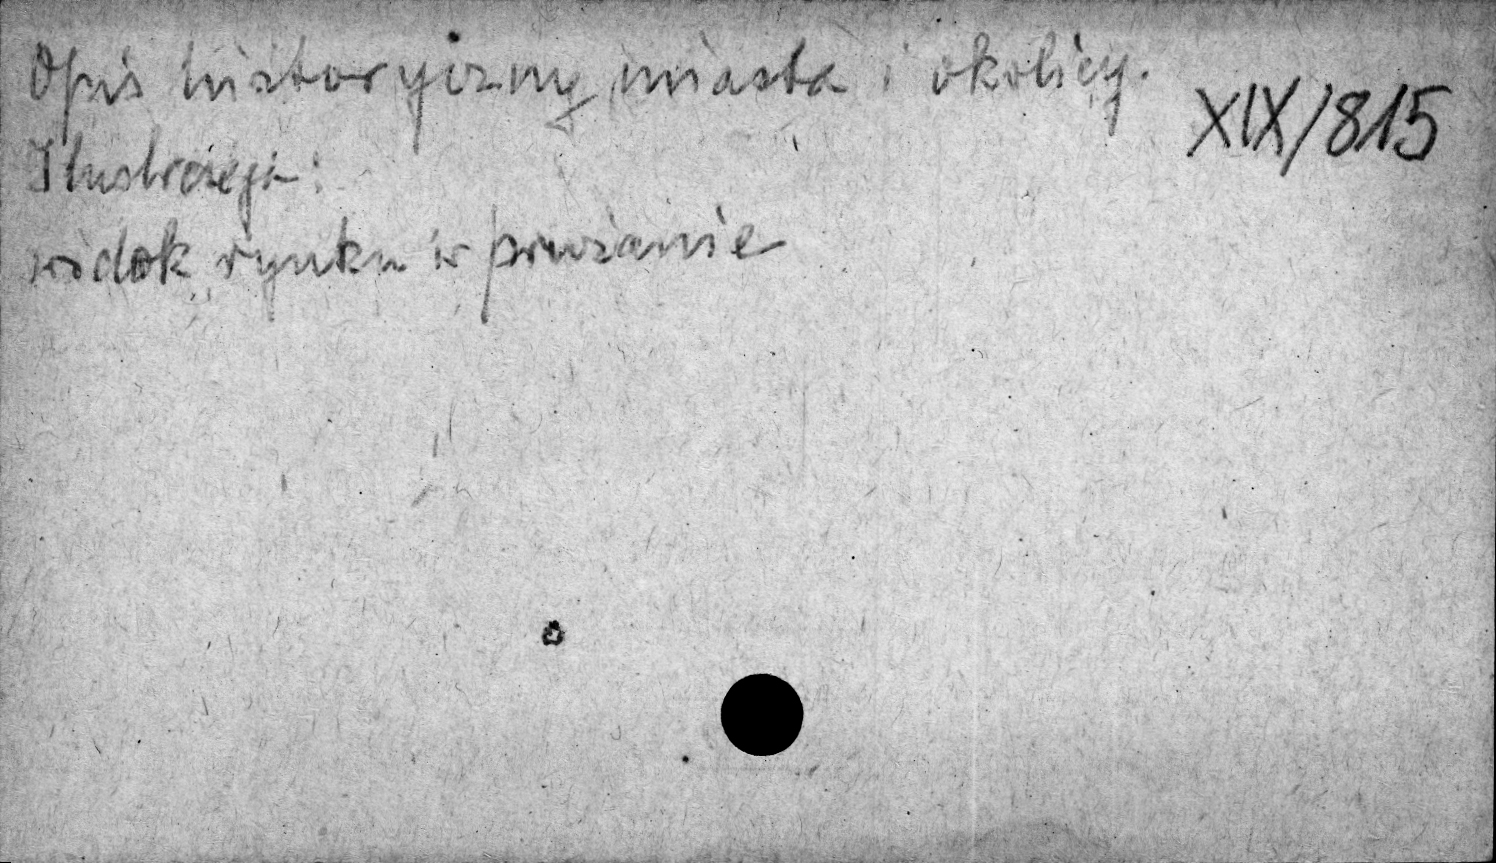 Opis historyczny miasta i okolicy.
XIX/815
Ilustracja:
widok rynku w